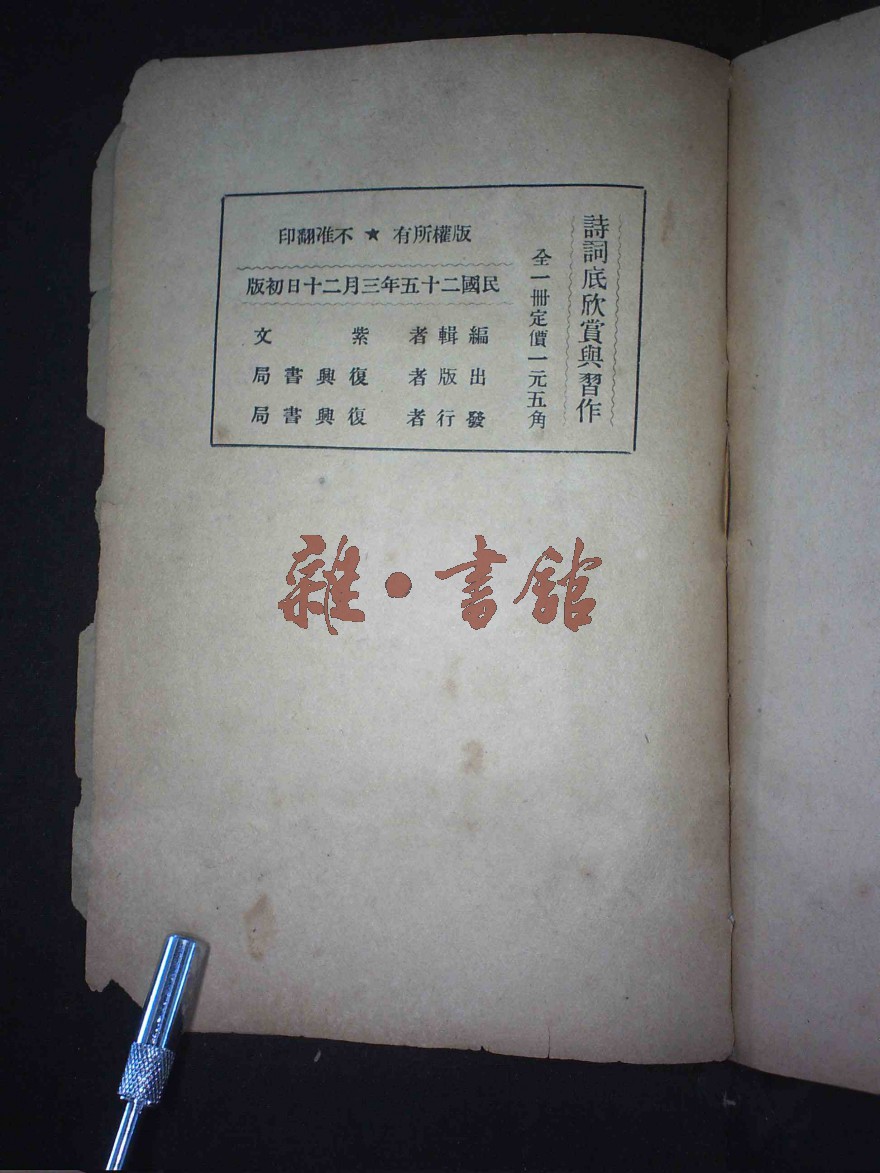 詩詞底欣賞與習作
全一冊定價一元五角
版權所有★不准翻印
民國二十五年三月二十日初版
編輯者 紫文
出版者 復興書局
發行者 復興書局
雜·書館